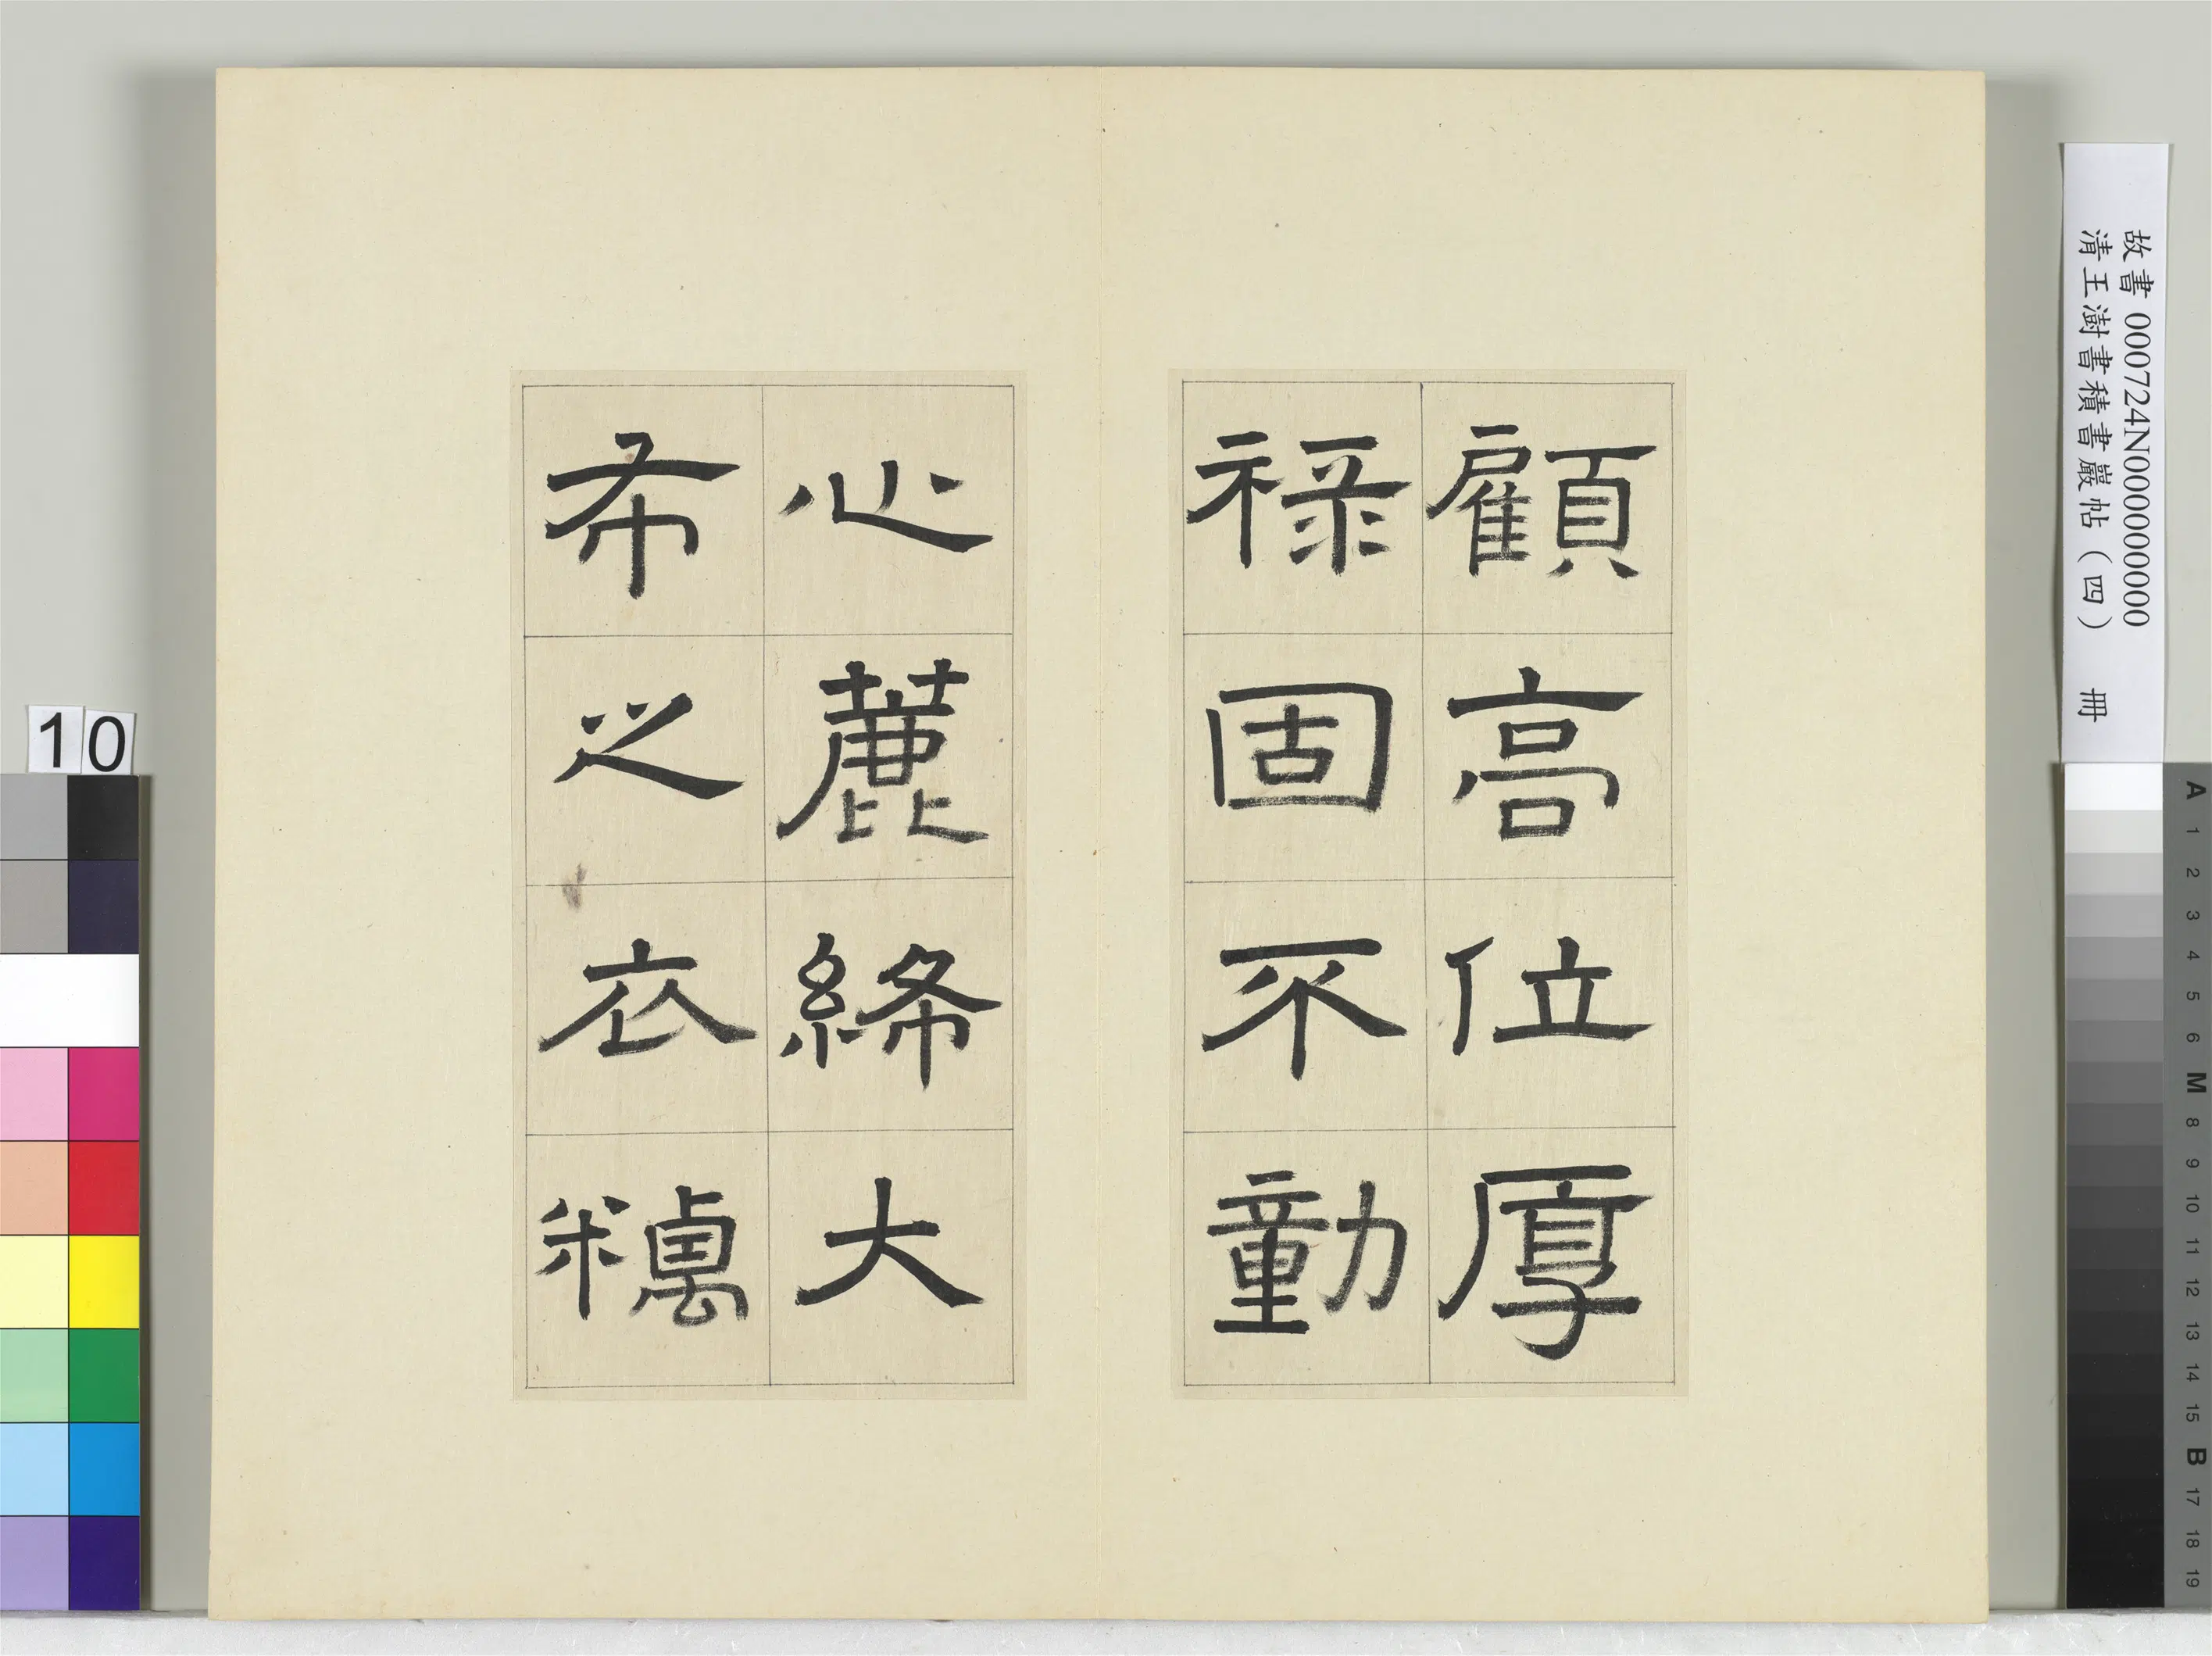 故書 000724N000000000
清王澍書積書巖帖（四） 冊
顧高位厚
祿固不動
心麤絺大
布之衣糲
10
A 1 2 3 4 5 6 M 8 9 10 11 12 13 14 15 B 17 18 19